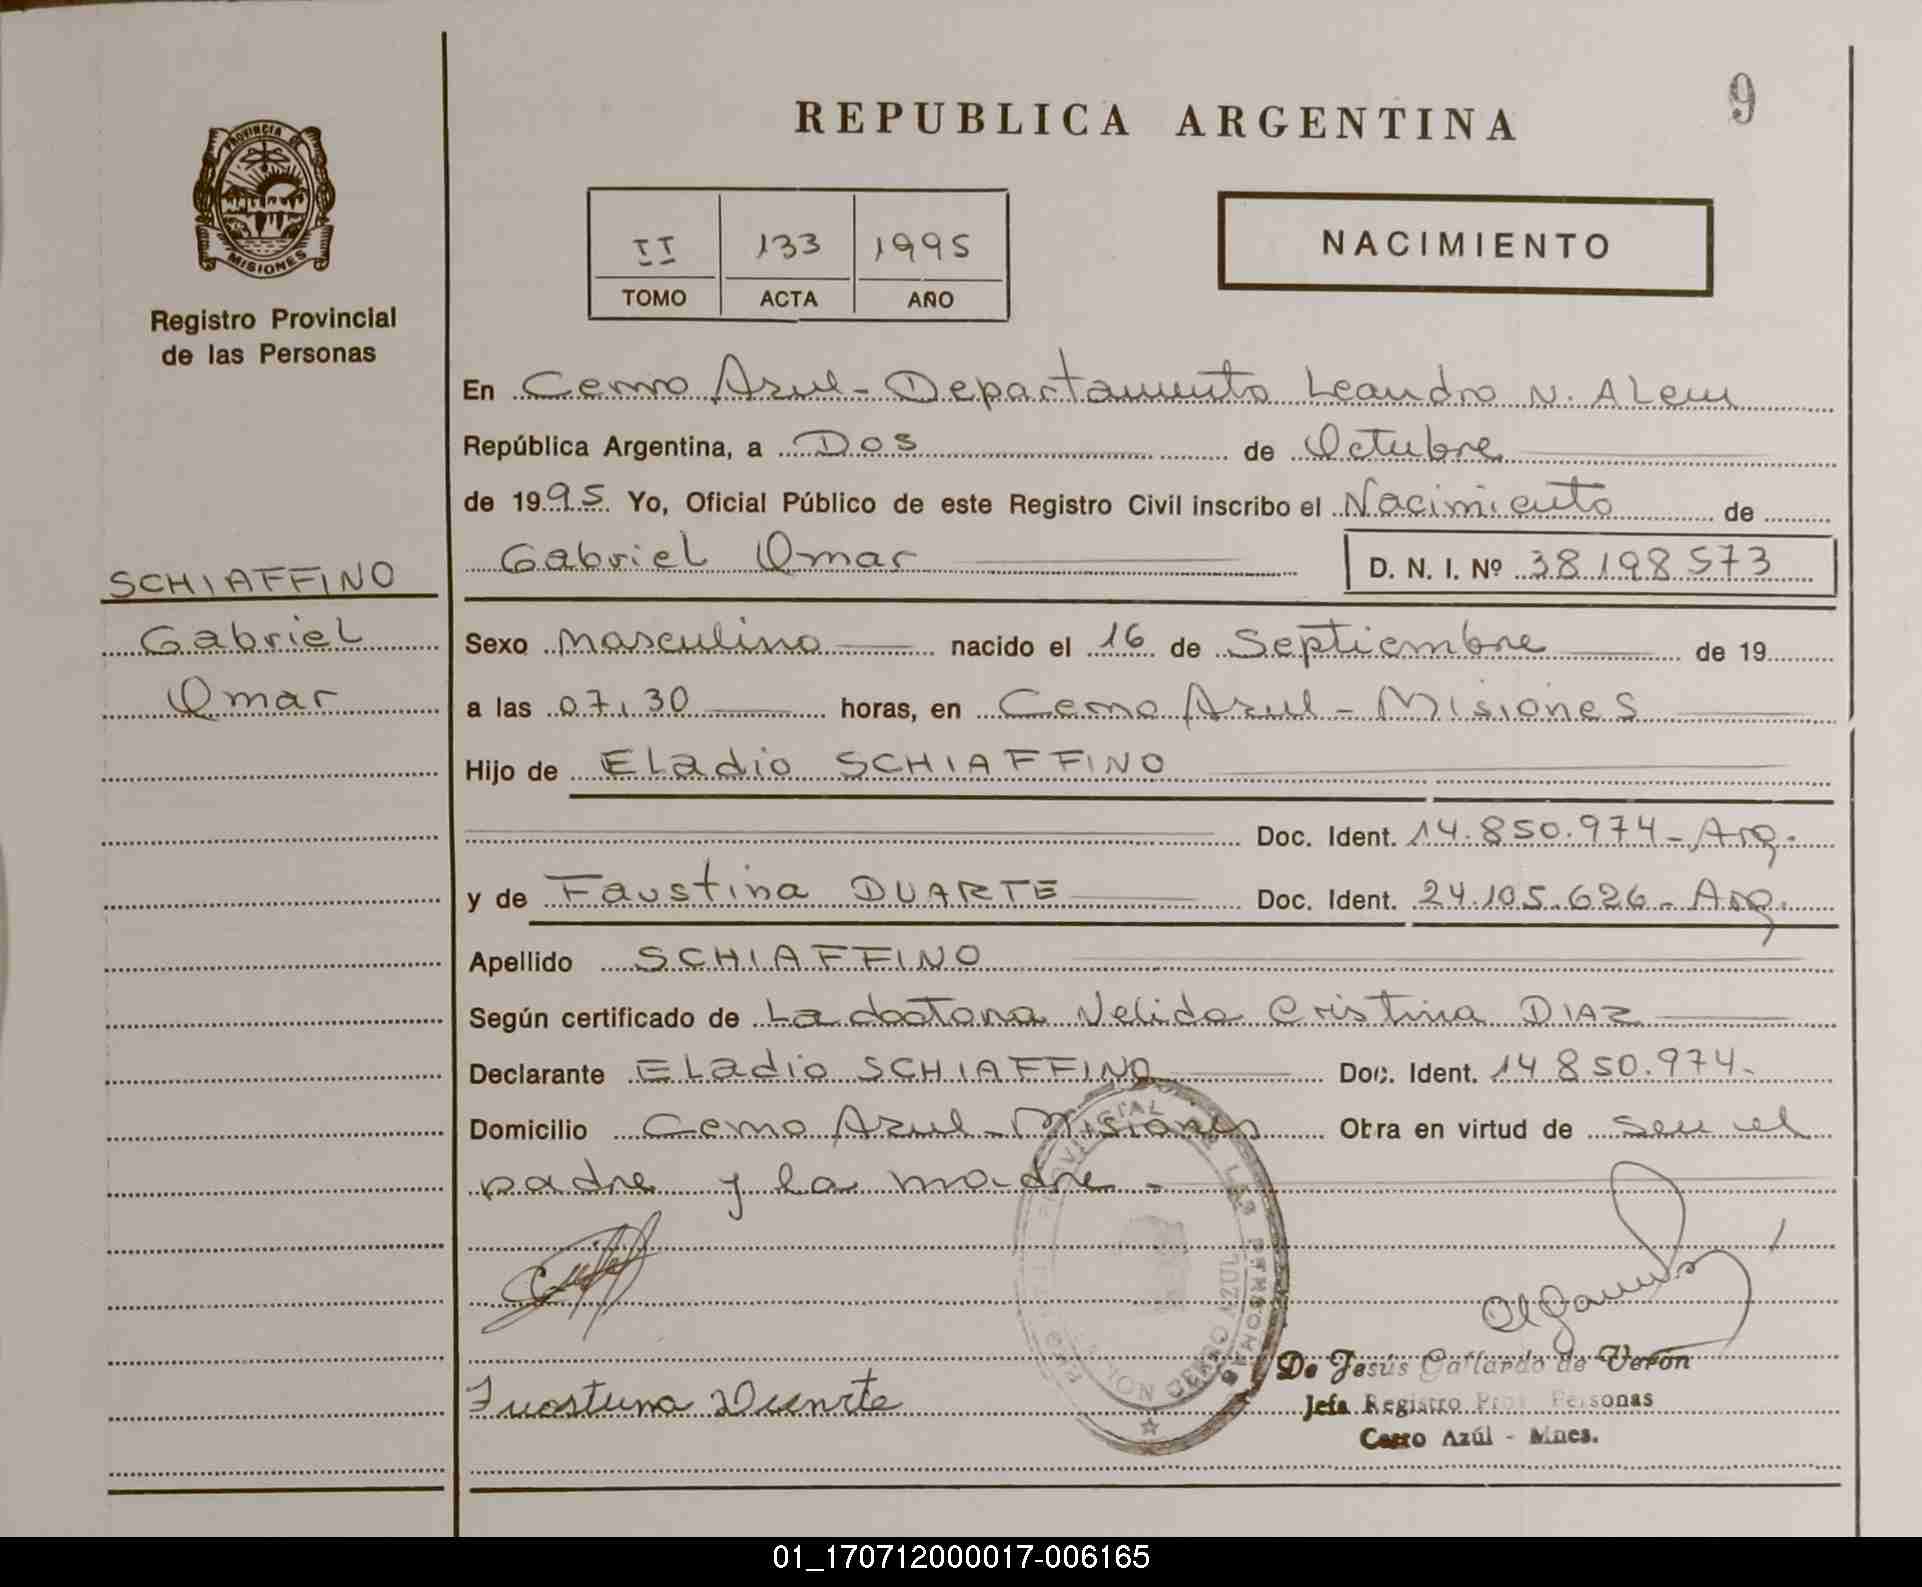 9
REPUBLICA ARGENTINA
PROVINCIA DE
MISIONES
Registro Provincial
de las Personas
II 133 1995
TOMO ACTA AÑO
NACIMIENTO
En Cerro Azul - Departamento Leandro N. Alem
República Argentina, a Dos de Octubre
de 1995 Yo, Oficial Público de este Registro Civil inscribo el Nacimiento de
Gabriel Omar D. N. I. Nº 38198573
SCHIAFFINO
Gabriel
Omar
Sexo masculino nacido el 16 de Septiembre de 19
a las 07,30 horas, en Cerro Azul - Misiones
Hijo de Eladio SCHIAFFINO
Doc. Ident. 14.850.974 - Arg.
y de Faustina DUARTE Doc. Ident. 24.105.626 - Arg.
Apellido SCHIAFFINO
Según certificado de La doctora Nelida Cristina DIAZ
Declarante Eladio SCHIAFFINO Doc. Ident. 14.850.974-
Domicilio Cerro Azul - Misiones Obra en virtud de ser el
padre y la madre -
De Jesús Gallardo de Verón
Jefa Registro Prov. Personas
Cerro Azúl - Mnes.
01_170712000017-006165